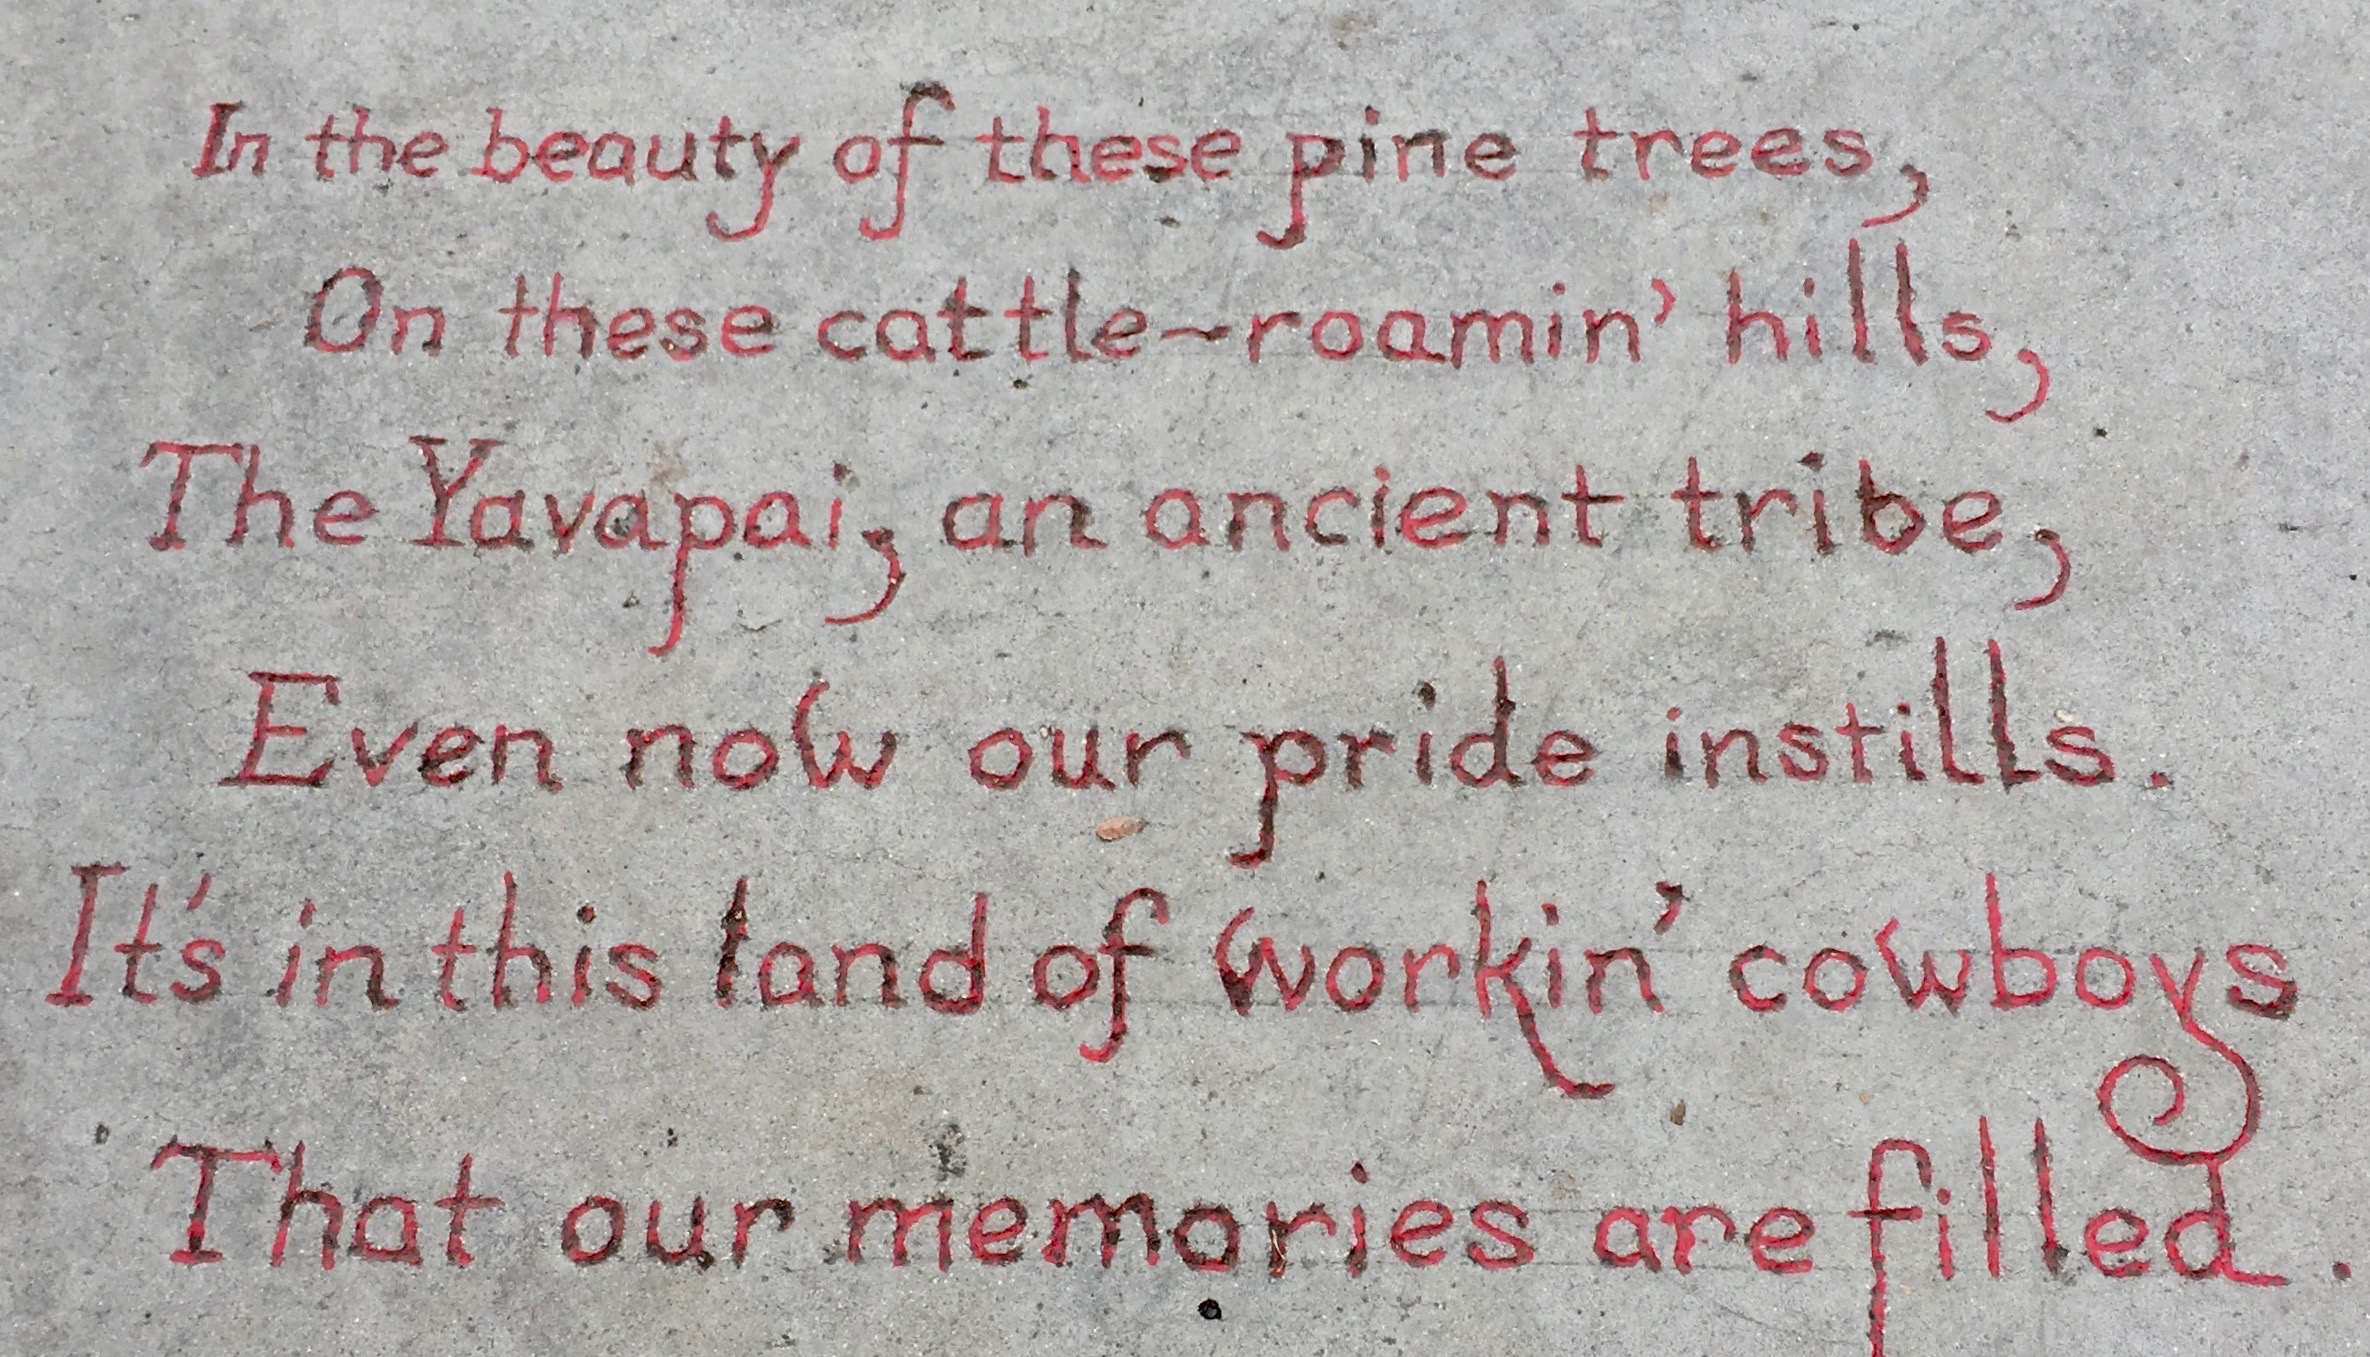 In the beauty of these pine trees,
On these cattle-roamin' hills,
The Yavapai, an ancient tribe,
Even now our pride instills.
It's in this land of workin' cowboys
That our memories are filled.